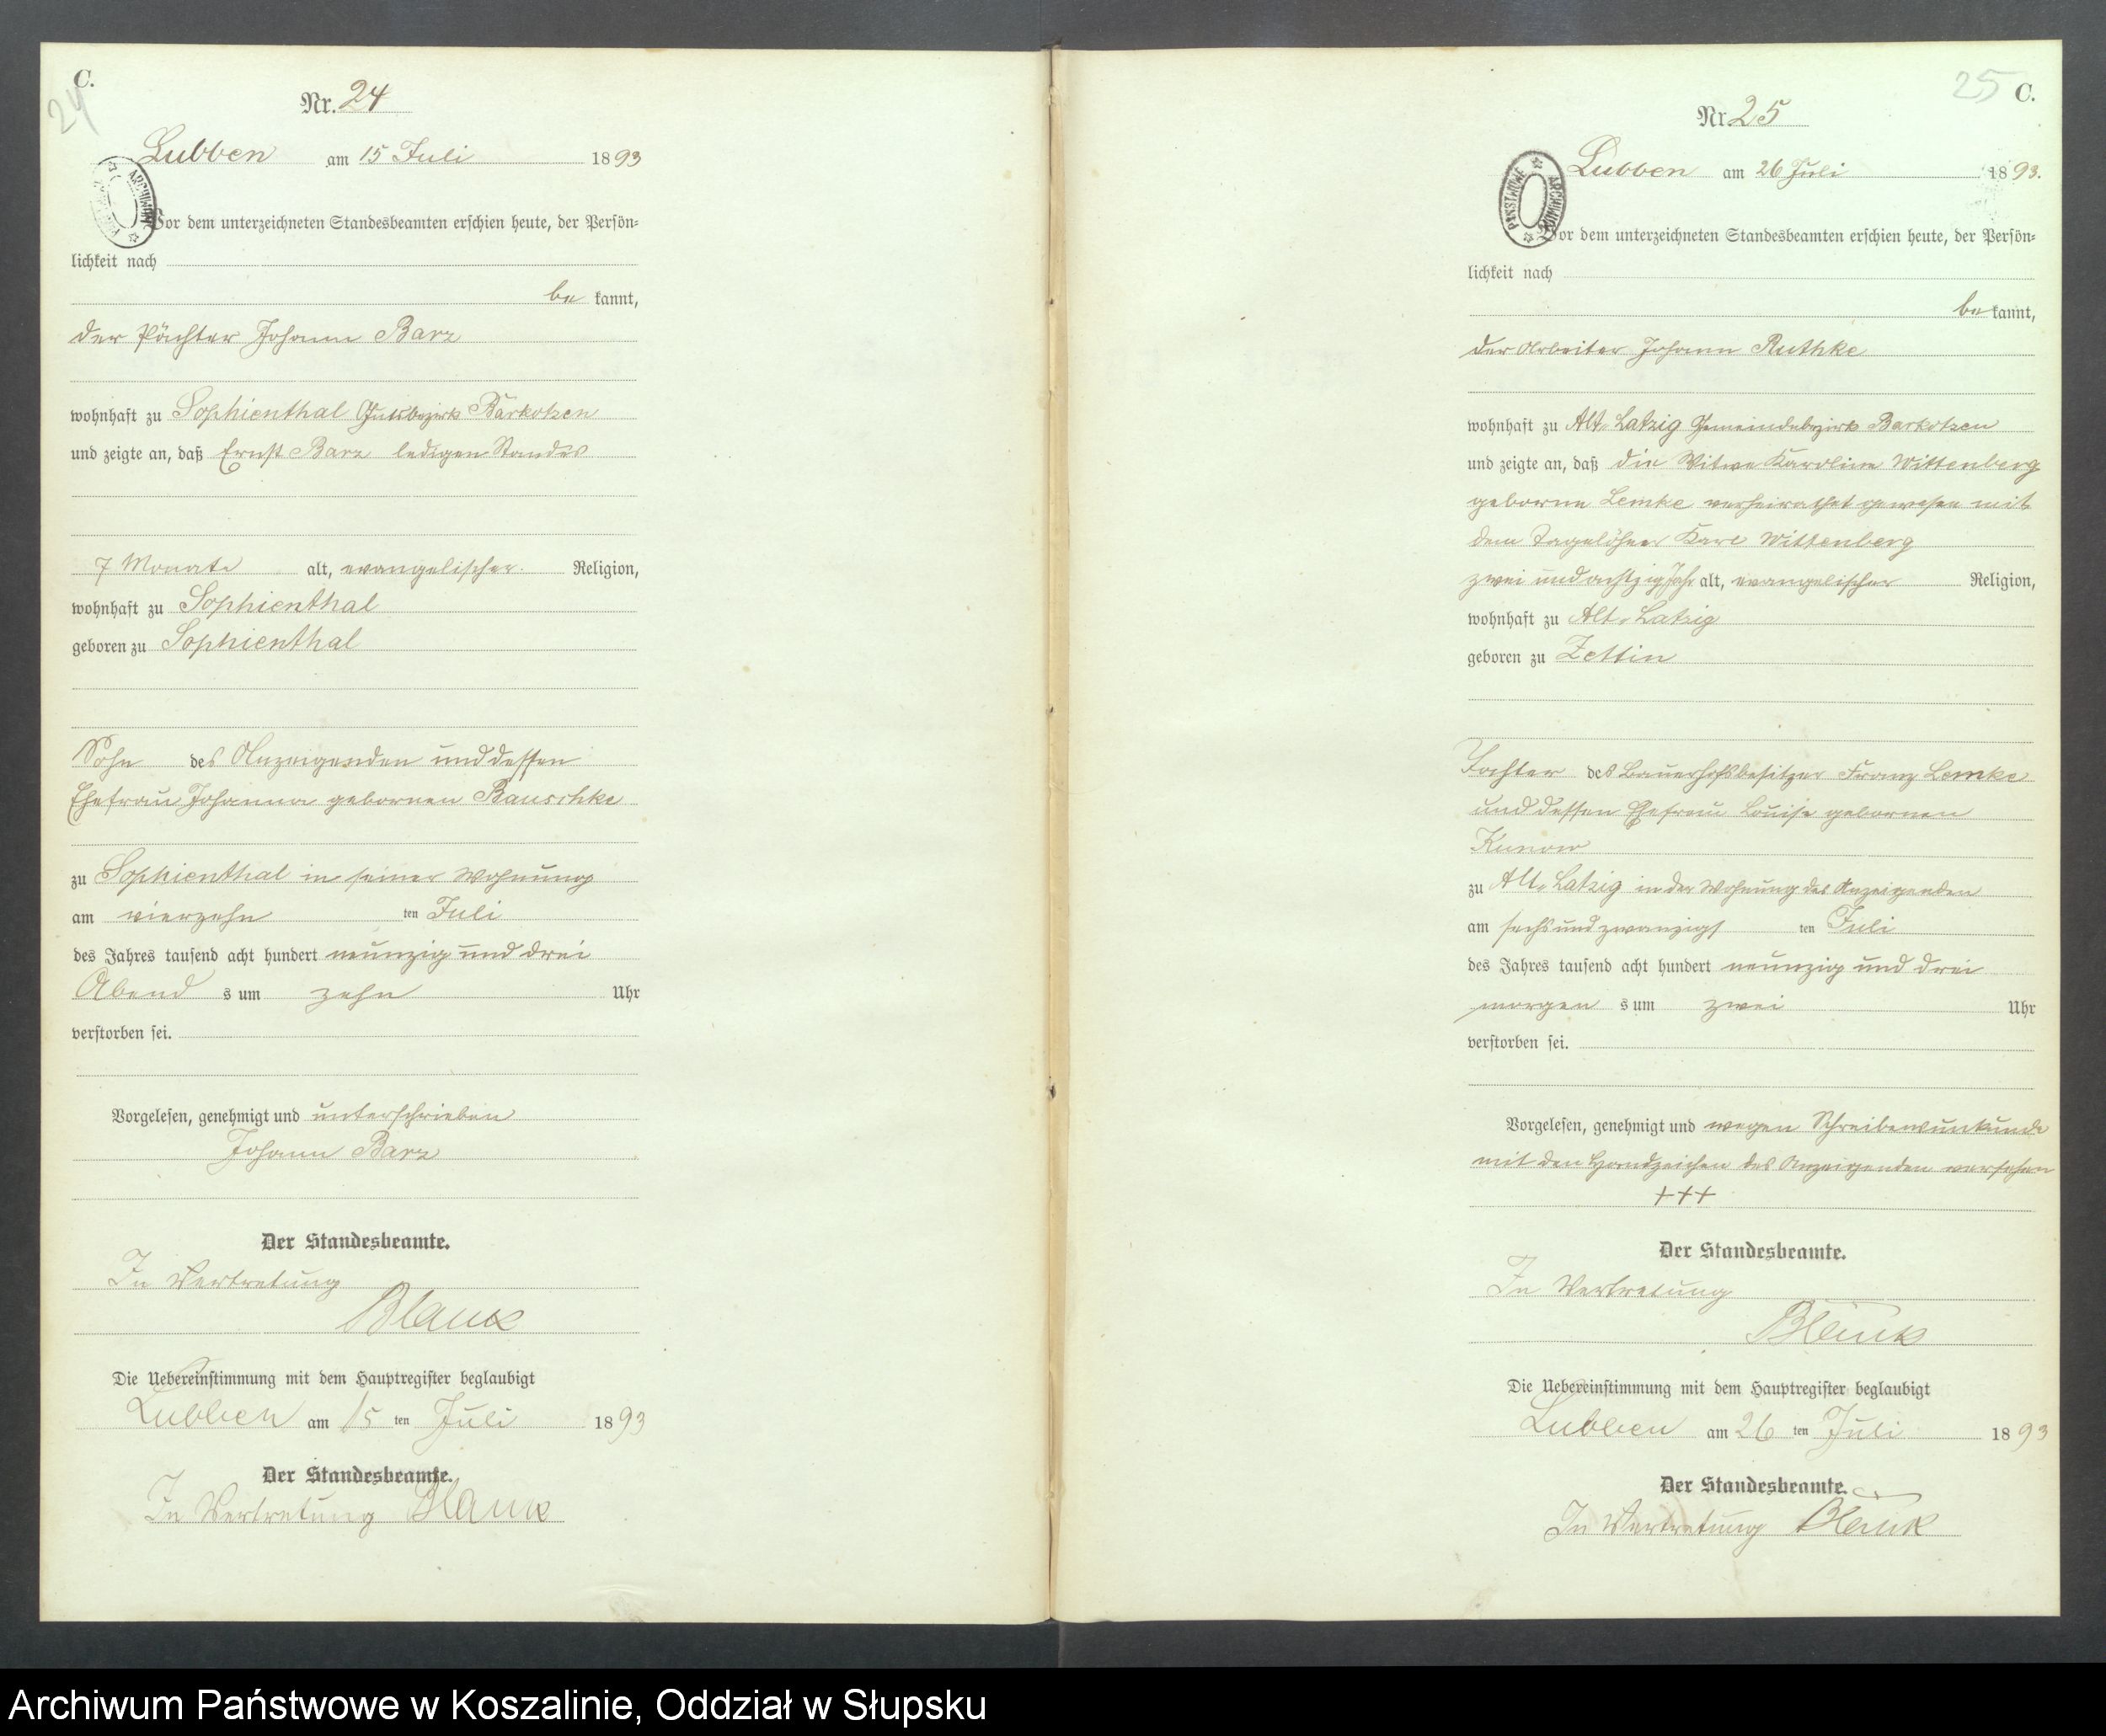 C.
24
Nr. 24
Lubben am 15 Juli 1893
Vor dem unterzeichneten Standesbeamten erschien heute, der Persön-
lichkeit nach
be kannt,
der Pächter Johann Barz
wohnhaft zu Sophienthal Gutsbezirk Barkotzen
und zeigte an, daß Ernst Barz ledigen Standes
7 Monate alt, evangelischer Religion,
wohnhaft zu Sophienthal
geboren zu Sophienthal
Sohn des Anzeigenden und dessen
Ehefrau Johanna gebornen Bauschke
zu Sophienthal in seiner Wohnung
am vierzehn ten Juli
des Jahres tausend acht hundert neunzig und drei
Abend s um zehn Uhr
verstorben sei.
Vorgelesen, genehmigt und unterschrieben
Johann Barz
Der Standesbeamte.
In Vertretung
Blank
Die Uebereinstimmung mit dem Hauptregister beglaubigt
Lubben am 15 ten Juli 1893
Der Standesbeamte.
In Vertretung Blank
25 C.
Nr. 25
Lubben am 26 Juli 1893.
PAŃSTWOWE ARCHIWUM
Vor dem unterzeichneten Standesbeamten erschien heute, der Persön-
lichkeit nach
be kannt,
der Arbeiter Johann Ruthke
wohnhaft zu Alt-Latzig Gemeindebezirk Barkotzen
und zeigte an, daß die Witwe Karoline Wittenberg
geborne Lemke verheirathet gewesen mit
dem Tagelöhner Karl Wittenberg
zwei und achtzig Jahr alt, evangelischer Religion,
wohnhaft zu Alt-Latzig
geboren zu Zettin
Tochter des Bauerhofsbesitzer Franz Lemke
und dessen Ehefrau Louise gebornen
Kunow
zu Alt-Latzig in der Wohnung des Anzeigenden
am sechs und zwanzigs ten Juli
des Jahres tausend acht hundert neunzig und drei
morgen s um zwei Uhr
verstorben sei.
Vorgelesen, genehmigt und wegen Schreibensunkunde
mit den Handzeichen des Anzeigenden versehen
+++
Der Standesbeamte.
In Vertretung
Blank
Die Uebereinstimmung mit dem Hauptregister beglaubigt
Lubben am 26 ten Juli 1893
Der Standesbeamte.
In Vertretung Blank
Archiwum Państwowe w Koszalinie, Oddział w Słupsku